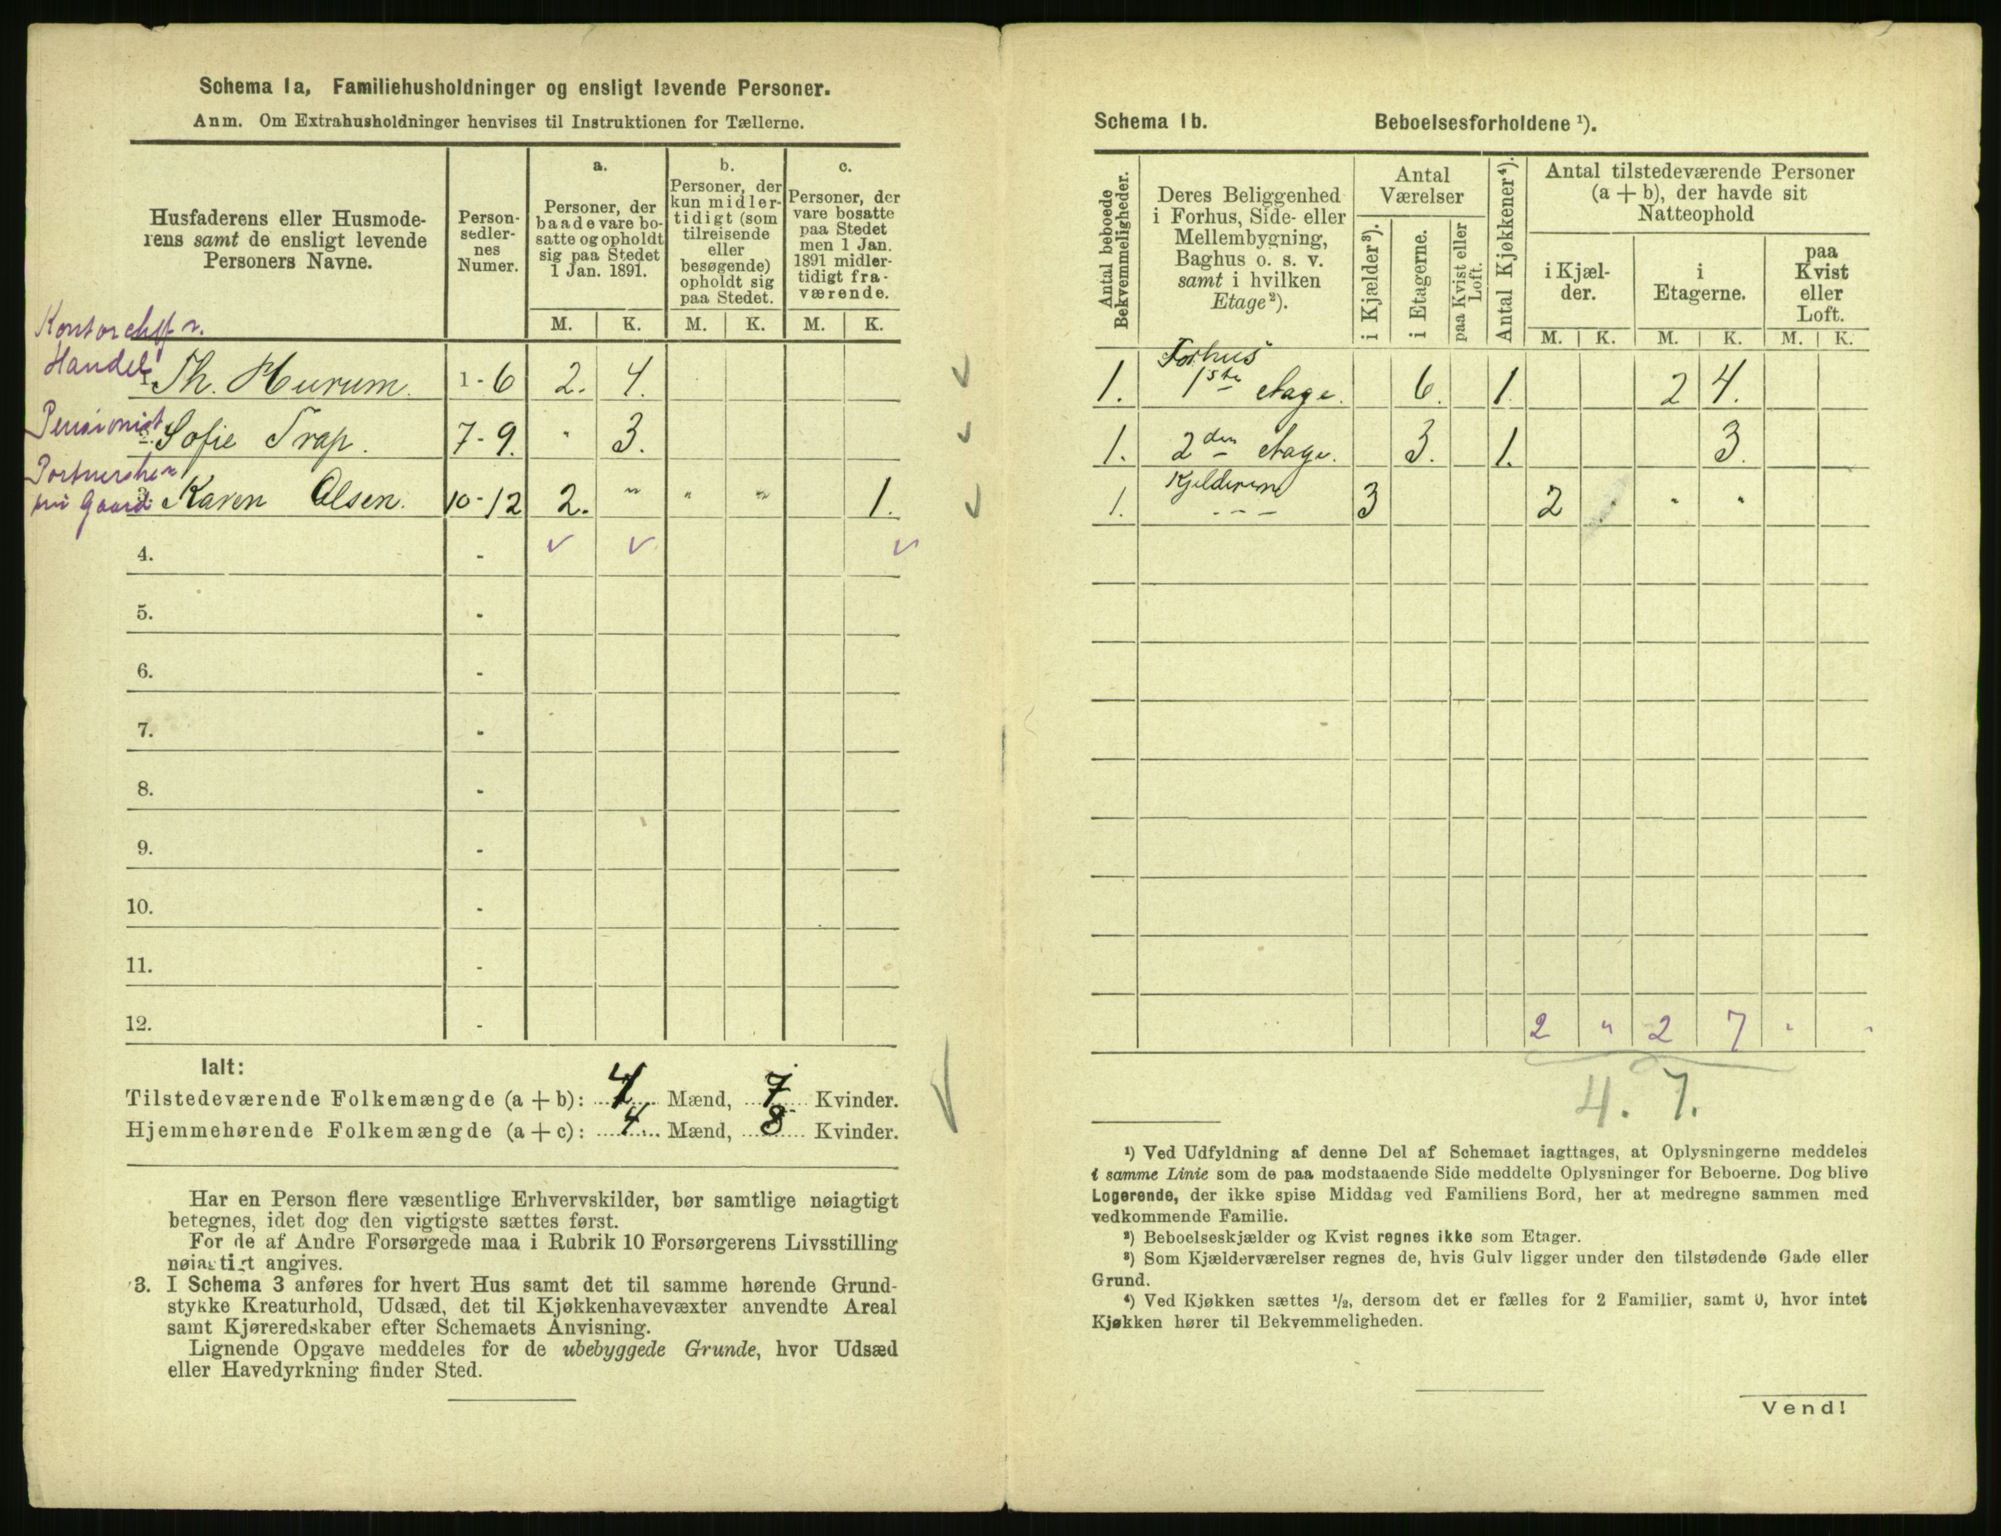 Schema 1a, Familiehusholdninger og ensligt levende Personer.
Anm. Om Extrahusholdninger henvises til Instruktionen for Tællerne.
Husfaderens eller Husmode-
rens samt de ensligt levende
Personers Navne.
Person-
sedler-
nes
Numer.
a.
Personer, der
baade vare bo-
satte og opholdt
sig paa Stedet
1 Jan. 1891.
b.
Personer, der
kun midler-
tidigt (som
tilreisende
eller
besøgende)
opholdt sig
paa Stedet.
c.
Personer, der
vare bosatte
paa Stedet
men 1 Jan.
1891 midler-
tidigt fra-
værende.
M. K. M. K. M. K.
Handel
1. Th. Hurum. 1-6 2. 4.
Pensionist
2. Sofie Trap. 7-9. " 3.
Gaard
3. Karen Olsen. 10-12 2. " " " 1.
4. - v v v
5. -
6. -
7. -
8. -
9. -
10. -
11. -
12. -
Ialt:
Tilstedeværende Folkemængde (a + b): 4 Mænd, 7 Kvinder.
Hjemmehørende Folkemængde (a + c): 4 Mænd, 8 Kvinder.
Har en Person flere væsentlige Erhvervskilder, bør samtlige nøiagtigt
betegnes, idet dog den vigtigste sættes først.
For de af Andre Forsørgede maa i Rubrik 10 Forsørgerens Livsstilling
nøiagtigt angives.
3. I Schema 3 anføres for hvert Hus samt det til samme hørende Grund-
stykke Kreaturhold, Udsæd, det til Kjøkkenhavevæxter anvendte Areal
samt Kjøreredskaber efter Schemaets Anvisning.
Lignende Opgave meddeles for de ubebyggede Grunde, hvor Udsæd
eller Havedyrkning finder Sted.
Schema 1b. Beboelsesforholdene ¹).
Antal beboede
Bekvemmeligheder.
Deres Beliggenhed
i Forhus, Side- eller
Mellembygning,
Baghus o. s. v.
samt i hvilken
Etage²).
Antal
Værelser
i Kjælder³).
i Etagerne.
paa Kvist eller
Loft.
Antal Kjøkkener⁴).
Antal tilstedeværende Personer
(a + b), der havde sit
Natteophold
i Kjæl-
der.
i
Etagerne.
paa
Kvist
eller
Loft.
M. K. M. K. M. K.
Forhus
1. 1ste etage. 6. 1. 2 4.
1. 2den etage. 3. 1. 3.
1. Kjelderen 3 2 " "
2 " 2 7 " "
4. 7.
¹) Ved Udfyldning af denne Del af Schemaet iagttages, at Oplysningerne meddeles
i samme Linie som de paa modstaaende Side meddelte Oplysninger for Beboerne. Dog blive
Logerende, der ikke spise Middag ved Familiens Bord, her at medregne sammen med
vedkommende Familie.
²) Beboelseskjælder og Kvist regnes ikke som Etager.
³) Som Kjælderværelser regnes de, hvis Gulv ligger under den tilstødende Gade eller
Grund.
⁴) Ved Kjøkken sættes 1/2, dersom det er fælles for 2 Familier, samt 0, hvor intet
Kjøkken hører til Bekvemmeligheden.
Vend!